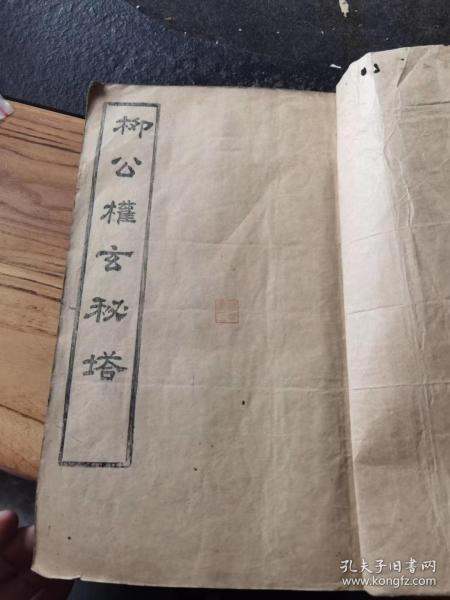 柳公權玄秘塔
孔夫子旧书网
www.kongfz.com